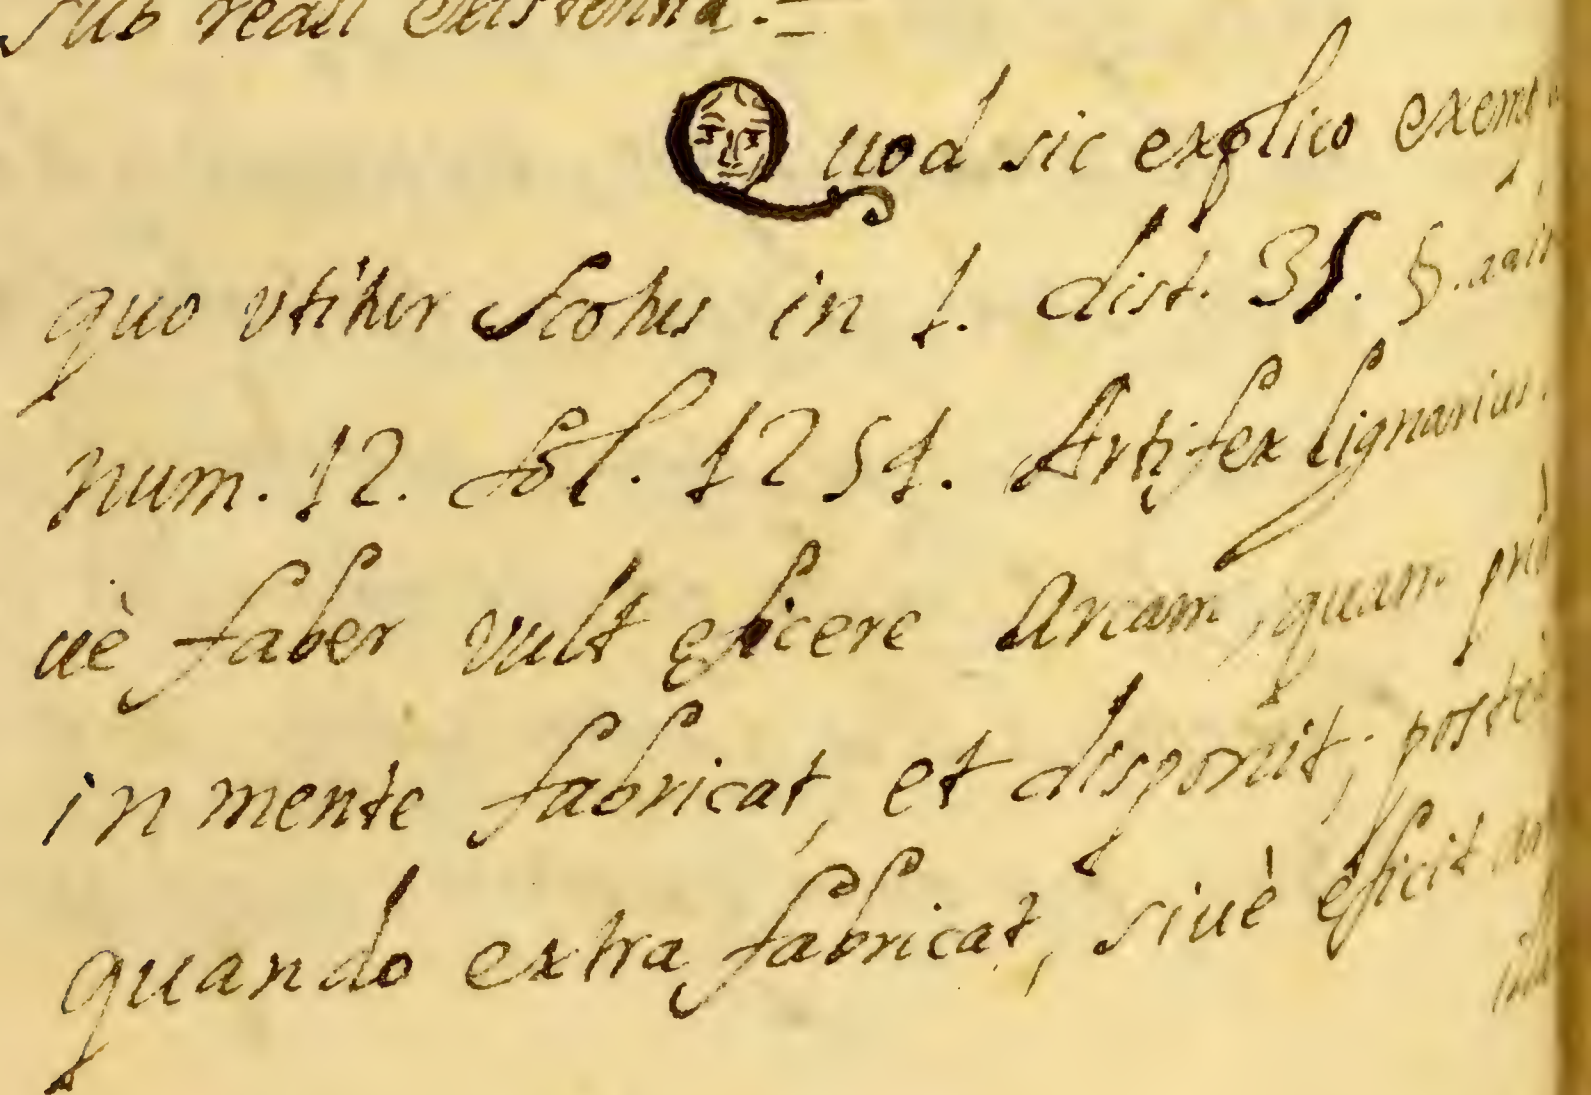 sub reali existentia.=
Quod sic explico exemp
quo vtitur Scotus in 1. dist. 35. §.
num. 12. fol. 1254. Artifex lignarius.
uè faber vult eficere Arcam, quam
in mente fabricat, et disponit; postea
quando extra fabricat, siuè eficit